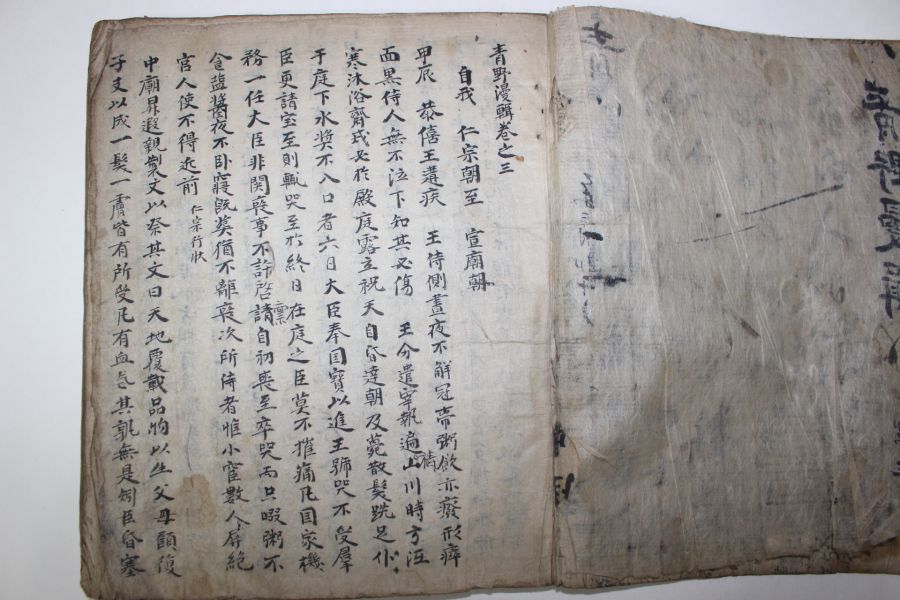 青野漫輯卷之三
自我 仁宗朝至 宣廟朝
甲辰 恭僖王遘疾 王侍側晝夜不解冠帶粥飮亦廢形瘁
面黑侍人無不泣下知其必傷 王分遣宰執遍禱山川時方沍
寒沐浴齊戒必於殿庭露立祝天自昏達朝及薨散髮跣足仆
于庭下水漿不入口者六日大臣奉国寶以進王號哭不受羣
臣更請宝至則輒哭至於終日在庭之臣莫不摧痛凡国家機
務一任大臣非関喪事不許啓稟請自初喪至卒哭而只啜粥不
食塩醬夜不卧寢旣葬猶不離喪次所侍者惟小宦數人屛絶
宮人使不得近前 仁宗行狀
中廟昇遐親製文以祭其文曰天地覆載品物以生父母顧復
子支以成一髮一膚皆有所受凡有血气其孰無是矧臣昏塞
靑野曼輯